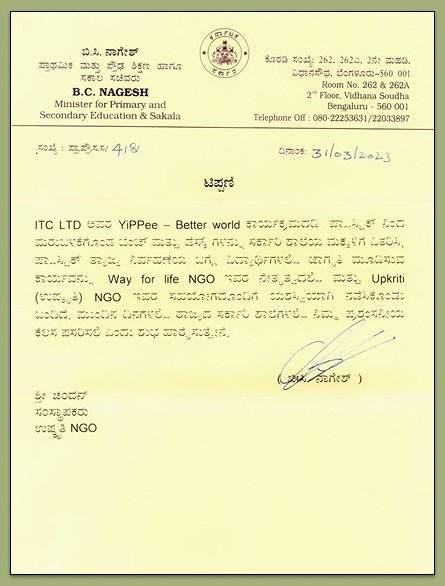 ಕರ್ನಾಟಕ
ಸರ್ಕಾರ
ಬಿ.ಸಿ. ನಾಗೇಶ್
ಪ್ರಾಥಮಿಕ ಮತ್ತು ಪ್ರೌಢ ಶಿಕ್ಷಣ ಹಾಗೂ
ಸಕಾಲ ಸಚಿವರು
B.C. NAGESH
Minister for Primary and
Secondary Education & Sakala
ಕೊಠಡಿ ಸಂಖ್ಯೆ: 262, 262ಎ, 2ನೇ ಮಹಡಿ,
ವಿಧಾನಸೌಧ, ಬೆಂಗಳೂರು-560 001
Room No. 262 & 262A
2nd Floor, Vidhana Soudha
Bengaluru - 560 001
Telephone Off : 080-22253631/22033897
ಸಂಖ್ಯೆ : ಪ್ರಾ.ಪ್ರೌ.ಸ.ಸ/ 418/
ದಿನಾಂಕ: 31/03/2023
ಟಿಪ್ಪಣಿ
ITC LTD ಅವರ YiPPee – Better world ಕಾರ್ಯಕ್ರಮದಡಿ ಪ್ಲಾಸ್ಟಿಕ್ ನಿಂದ
ಮರುಬಳಕೆಗೊಂಡ ಬೆಂಚ್ ಮತ್ತು ಡೆಸ್ಕ್ ಗಳನ್ನು ಸರ್ಕಾರಿ ಶಾಲೆಯ ಮಕ್ಕಳಿಗೆ ವಿತರಿಸಿ,
ಪ್ಲಾಸ್ಟಿಕ್ ತ್ಯಾಜ್ಯ ನಿರ್ವಹಣೆಯ ಬಗ್ಗೆ ವಿದ್ಯಾರ್ಥಿಗಳಲ್ಲಿ ಜಾಗೃತಿ ಮೂಡಿಸುವ
ಕಾರ್ಯವನ್ನು Way for life NGO ಇವರ ನೇತೃತ್ವದಲ್ಲಿ ಮತ್ತು Upkriti
(ಉಪ್ಕೃತಿ) NGO ಇವರ ಸಹಯೋಗದೊಂದಿಗೆ ಯಶಸ್ವಿಯಾಗಿ ನಡೆಸಿಕೊಂಡು
ಬಂದಿದೆ. ಮುಂದಿನ ದಿನಗಳಲ್ಲಿ ರಾಜ್ಯದ ಸರ್ಕಾರಿ ಶಾಲೆಗಳಲ್ಲಿ ನಿಮ್ಮ ಪ್ರಶಂಸನೀಯ
ಕೆಲಸ ಪಸರಿಸಲಿ ಎಂದು ಶುಭ ಹಾರೈಸುತ್ತೇನೆ.
( ಬಿ.ಸಿ. ನಾಗೇಶ್ )
ಶ್ರೀ ಚಂದನ್
ಸಂಸ್ಥಾಪಕರು
ಉಪ್ಕೃತಿ NGO